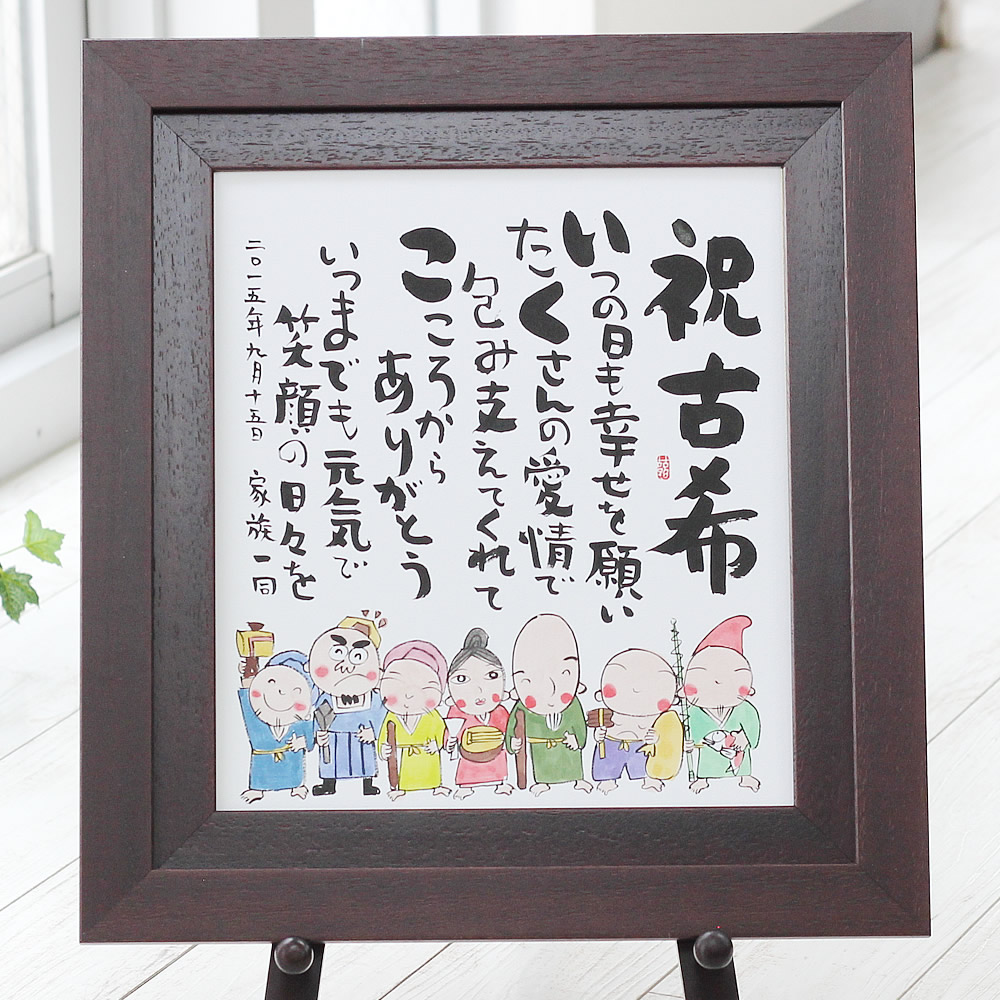 祝古希
いつの日も幸せを願い
たくさんの愛情で
包み支えてくれて
こころから
ありがとう
いつまでも元気で
笑顔の日々を
二〇一五年九月十五日 家族一同